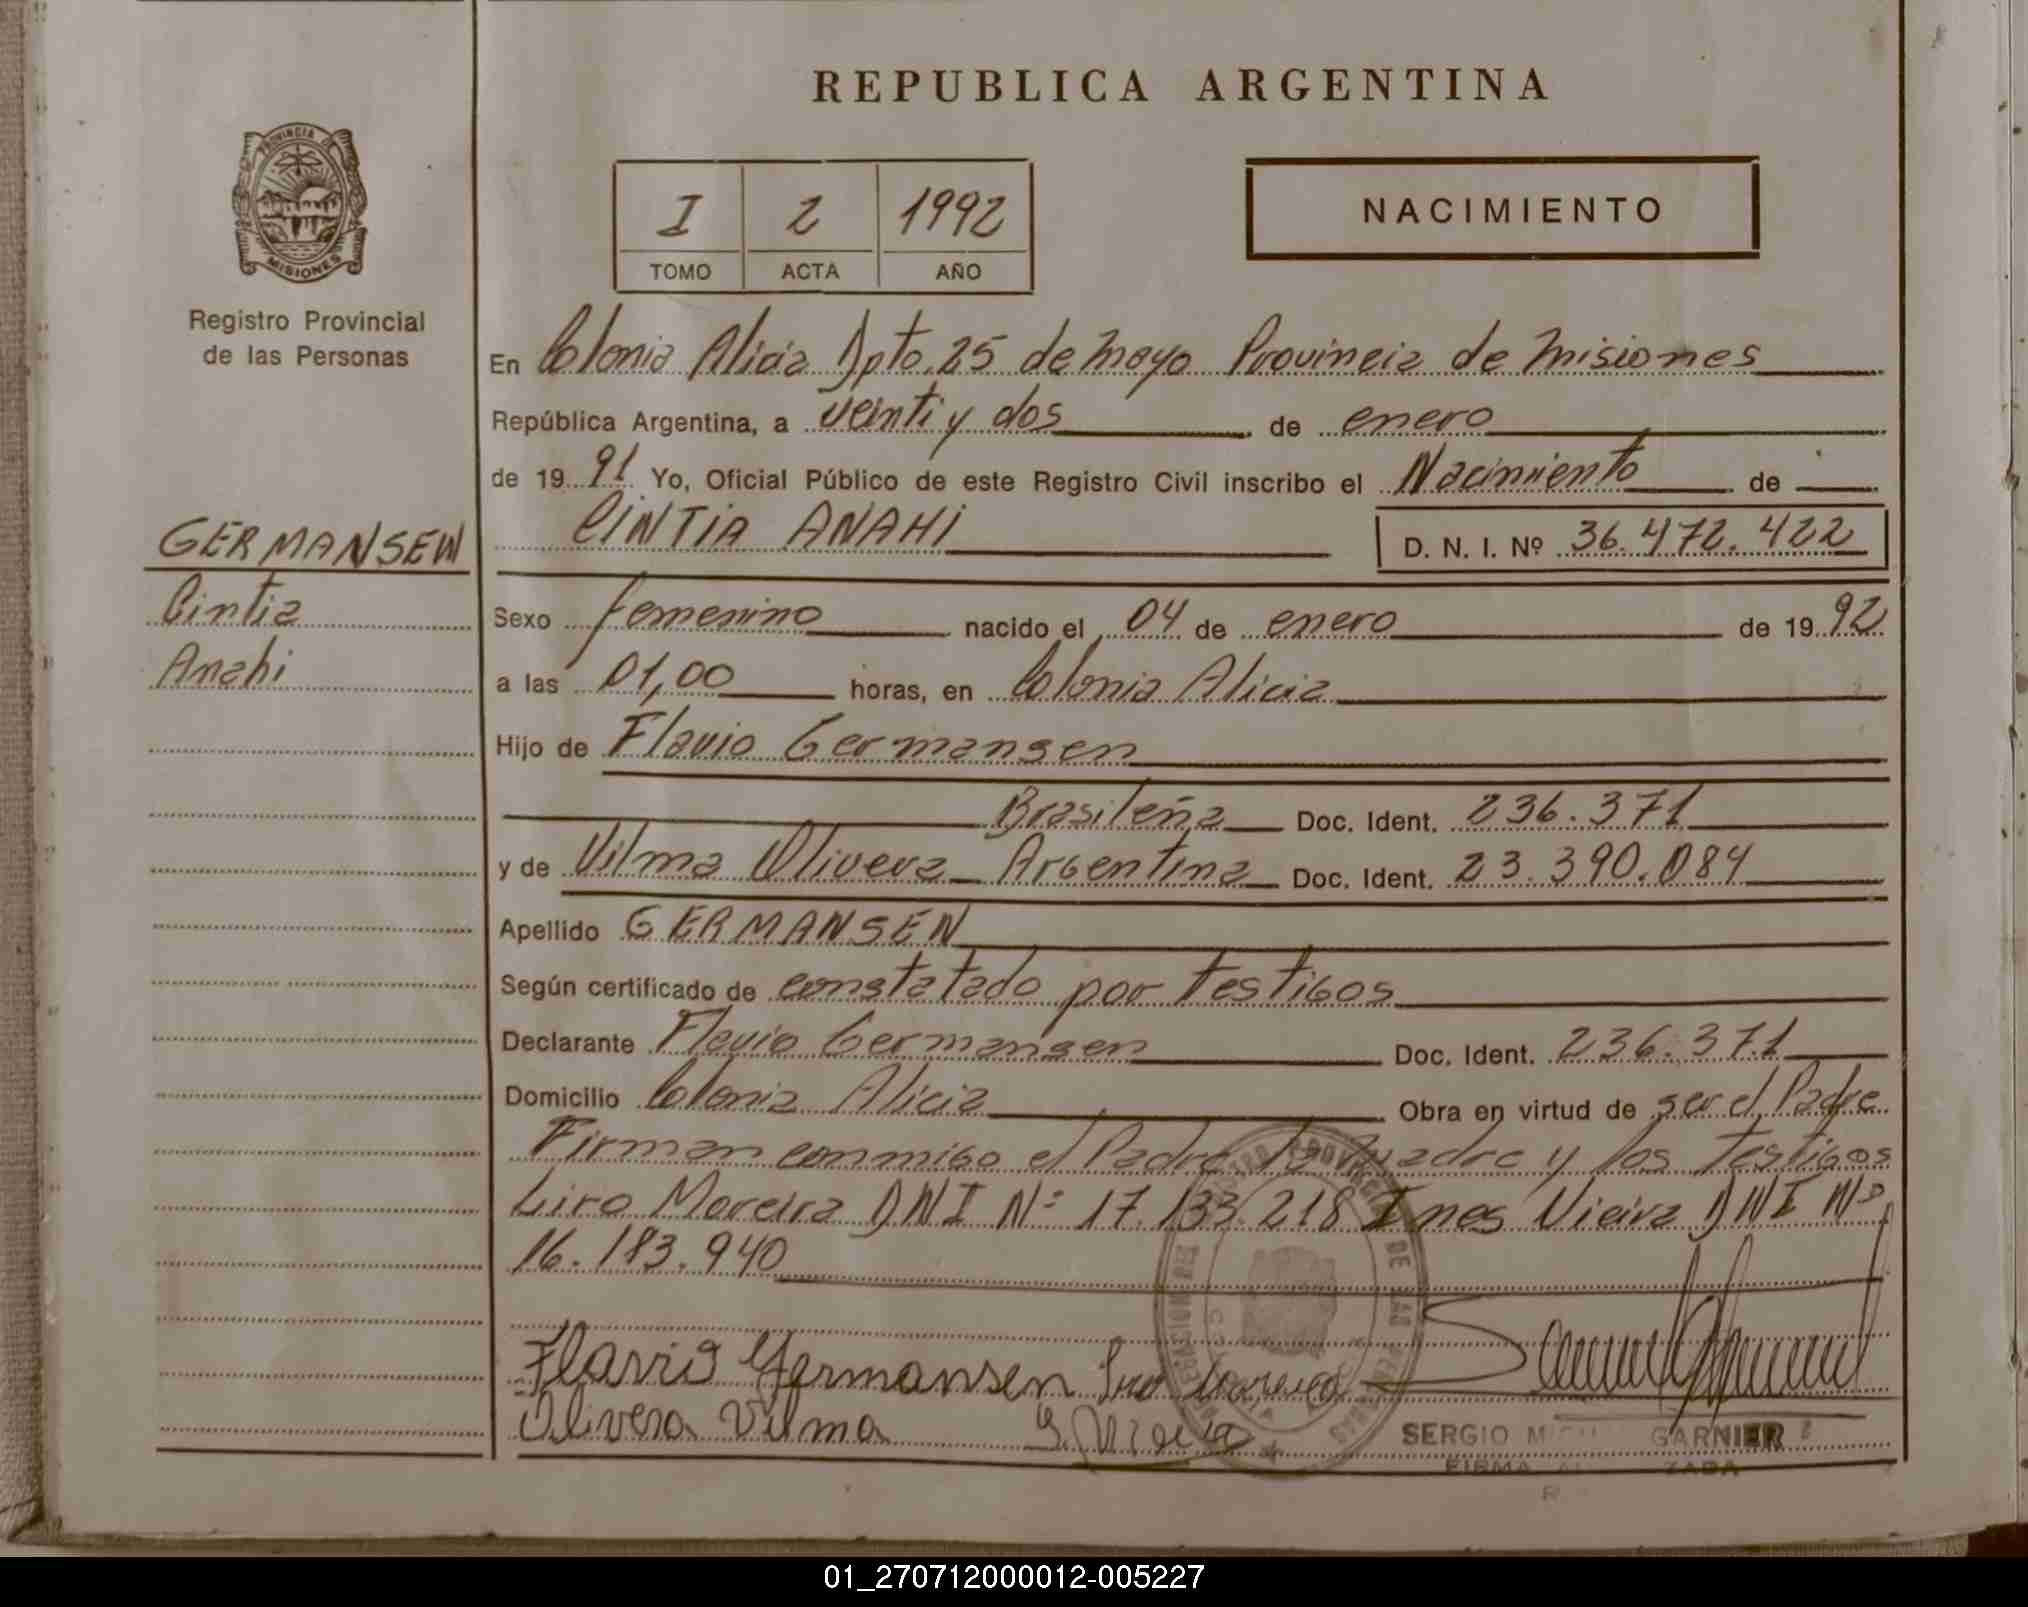 REPUBLICA ARGENTINA
PROVINCIA DE
MISIONES
Registro Provincial
de las Personas
I 2 1992
TOMO ACTA AÑO
NACIMIENTO
En Colonia Alicia Dpto. 25 de mayo Provincia de misiones
República Argentina, a veinti y dos de enero
de 19 91 Yo, Oficial Público de este Registro Civil inscribo el Nacimiento de
CINTIA ANAHI D. N. I. Nº 36.472.422
GERMANSEN
Cintia
Anahi
Sexo femenino nacido el 04 de enero de 19 92
a las 01,00 horas, en Colonia Alicia
Hijo de Flavio Germansen
Brasileña Doc. Ident. 236.371
y de Vilma Olivera Argentina Doc. Ident. 23.390.084
Apellido GERMANSEN
Según certificado de constatado por testigos
Declarante Flavio Germansen Doc. Ident. 236.371
Domicilio Colonia Alicia Obra en virtud de ser el Padre
Firman conmigo el Padre la Madre y los testigos
Liro Moreira DNI Nº 17.133.218 Ines Vieira DNI Nº
16.183.940
Flavio Germansen
Olivera Vilma
SERGIO GARNIER
FIRMA
01_270712000012-005227